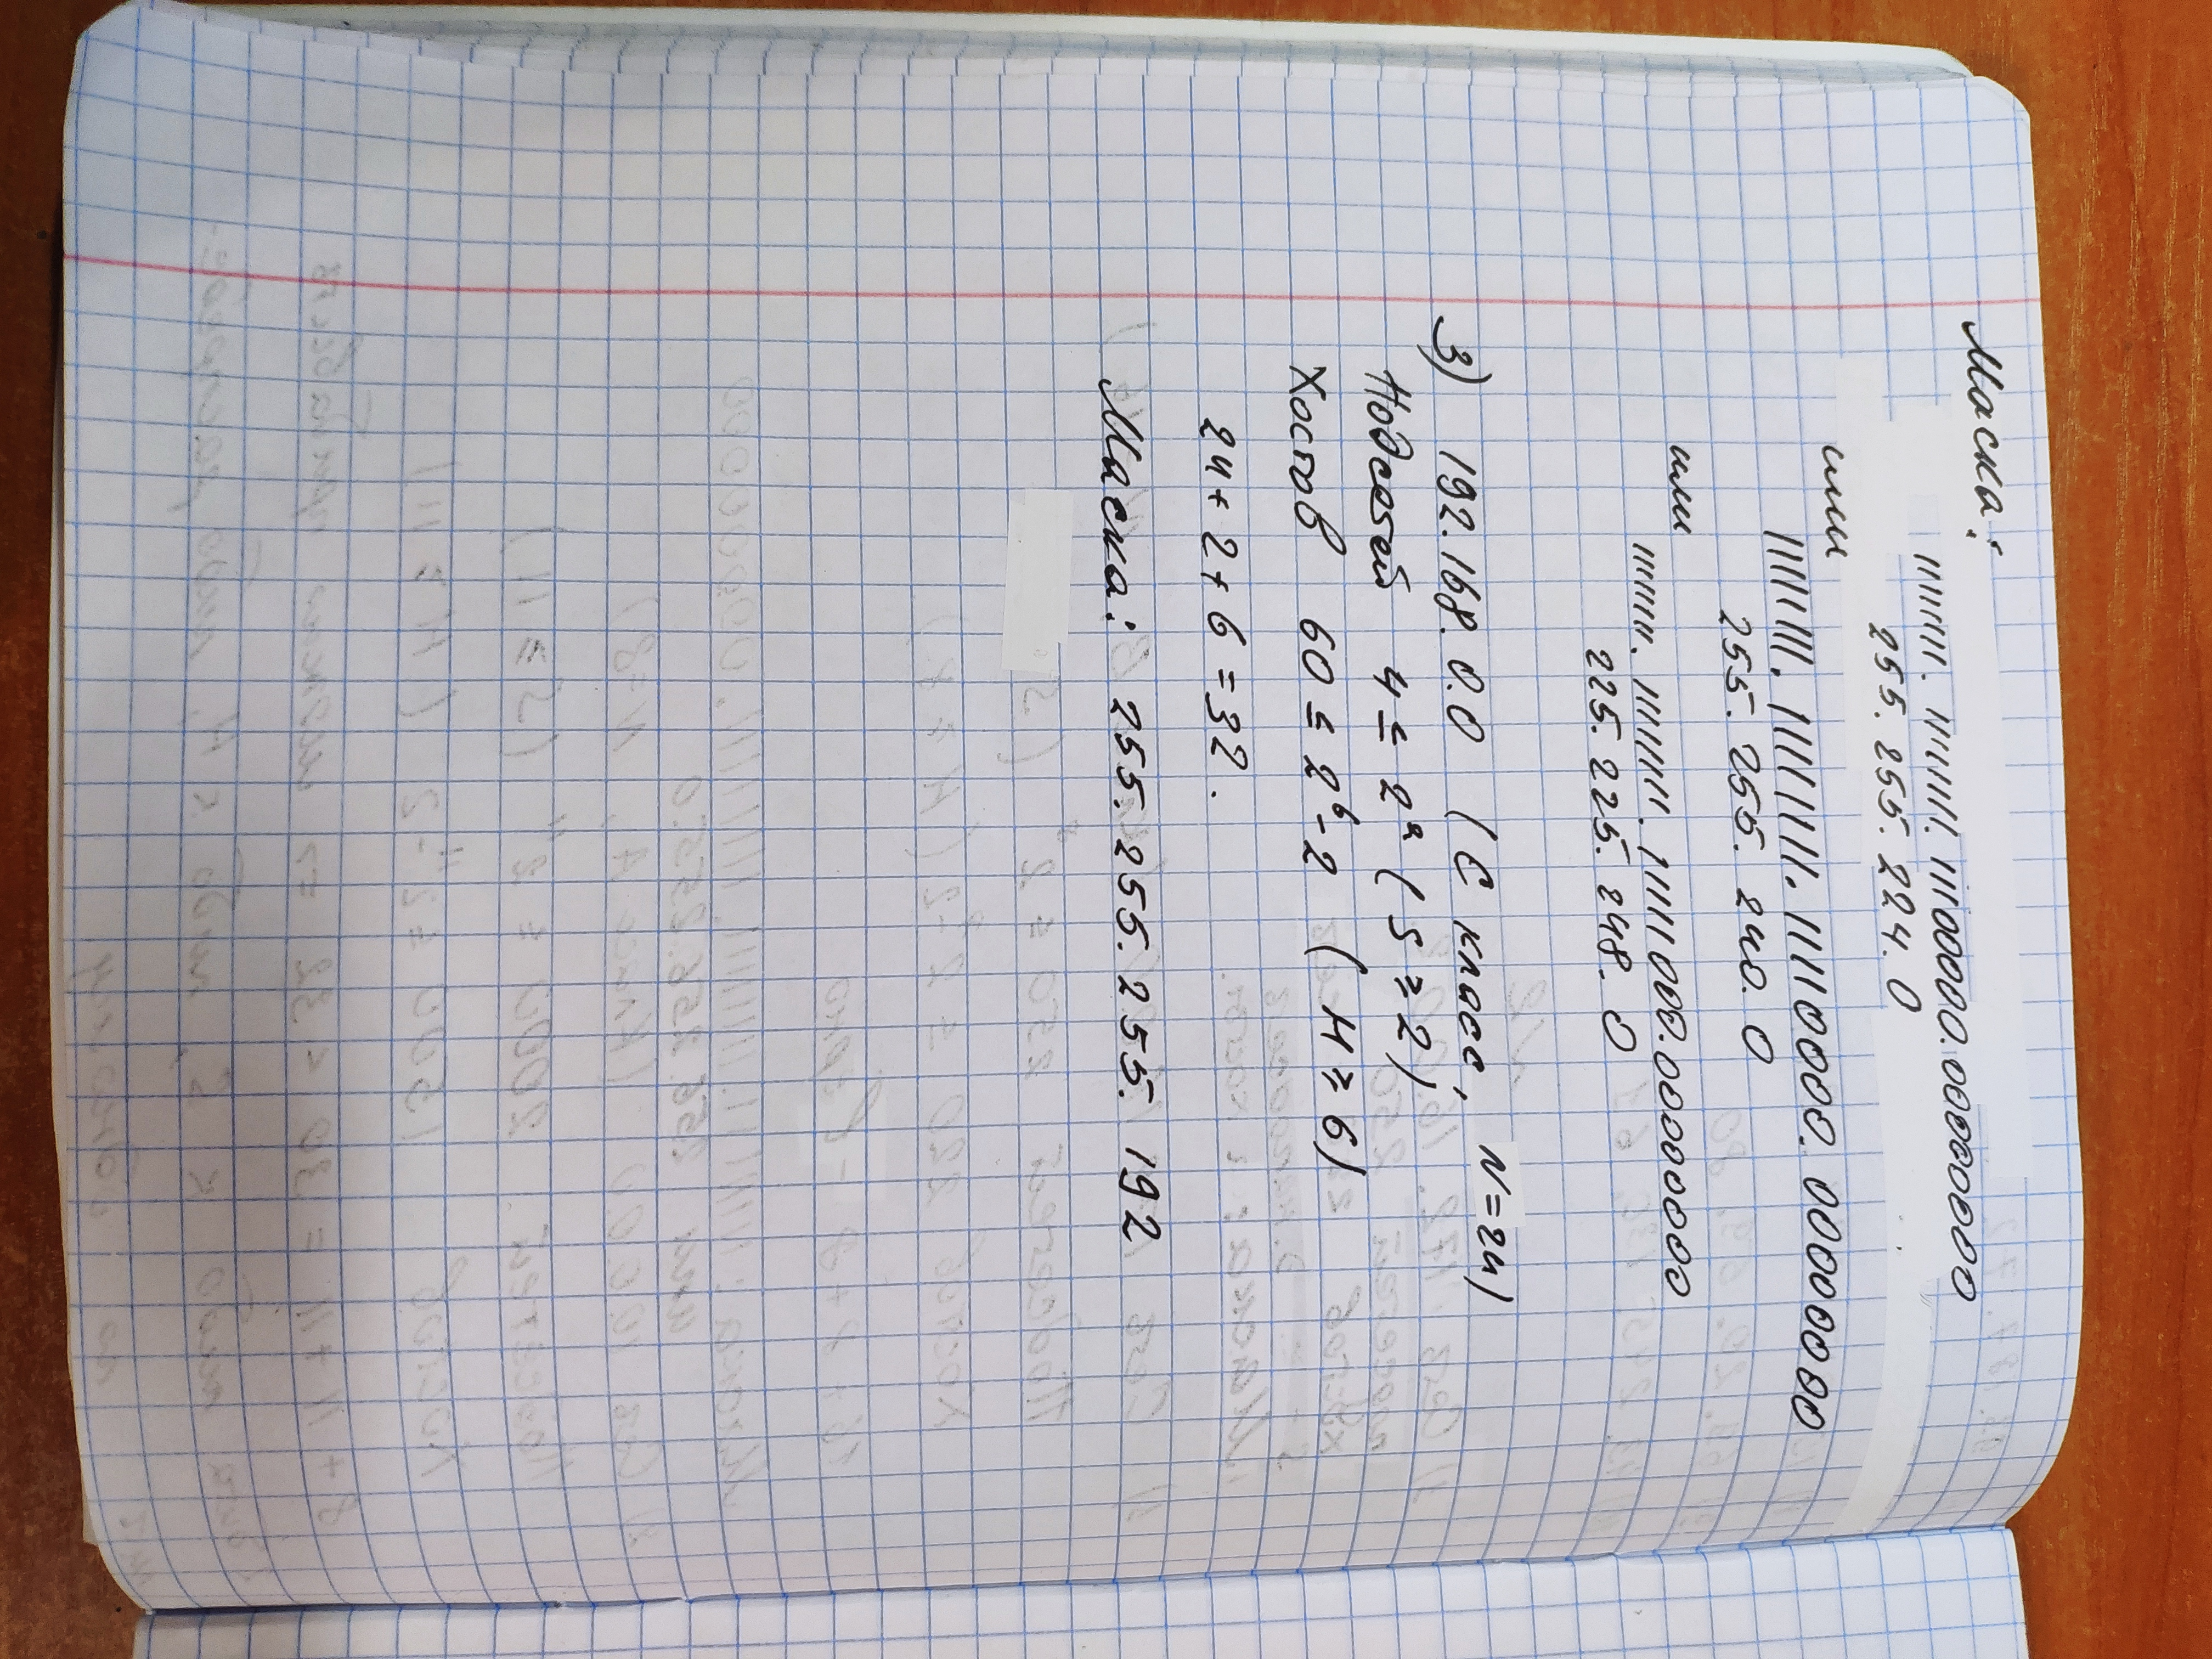 Маска:
11111111. 11111111. 11100000.00000000
255. 255. 224. 0
или
11111111. 11111111. 11110000. 00000000
255. 255. 240. 0
или
11111111. 11111111. 11111000.00000000
225. 225. 248. 0
3) 192.168.0.0 (С класс, N=24)
Подсетей 4 ≤ 2² (S ≥ 2)
Хостов 60 ≤ 2⁶-2 (H ≥ 6)
24+2+6=32.
Маска: 255.255.255.192